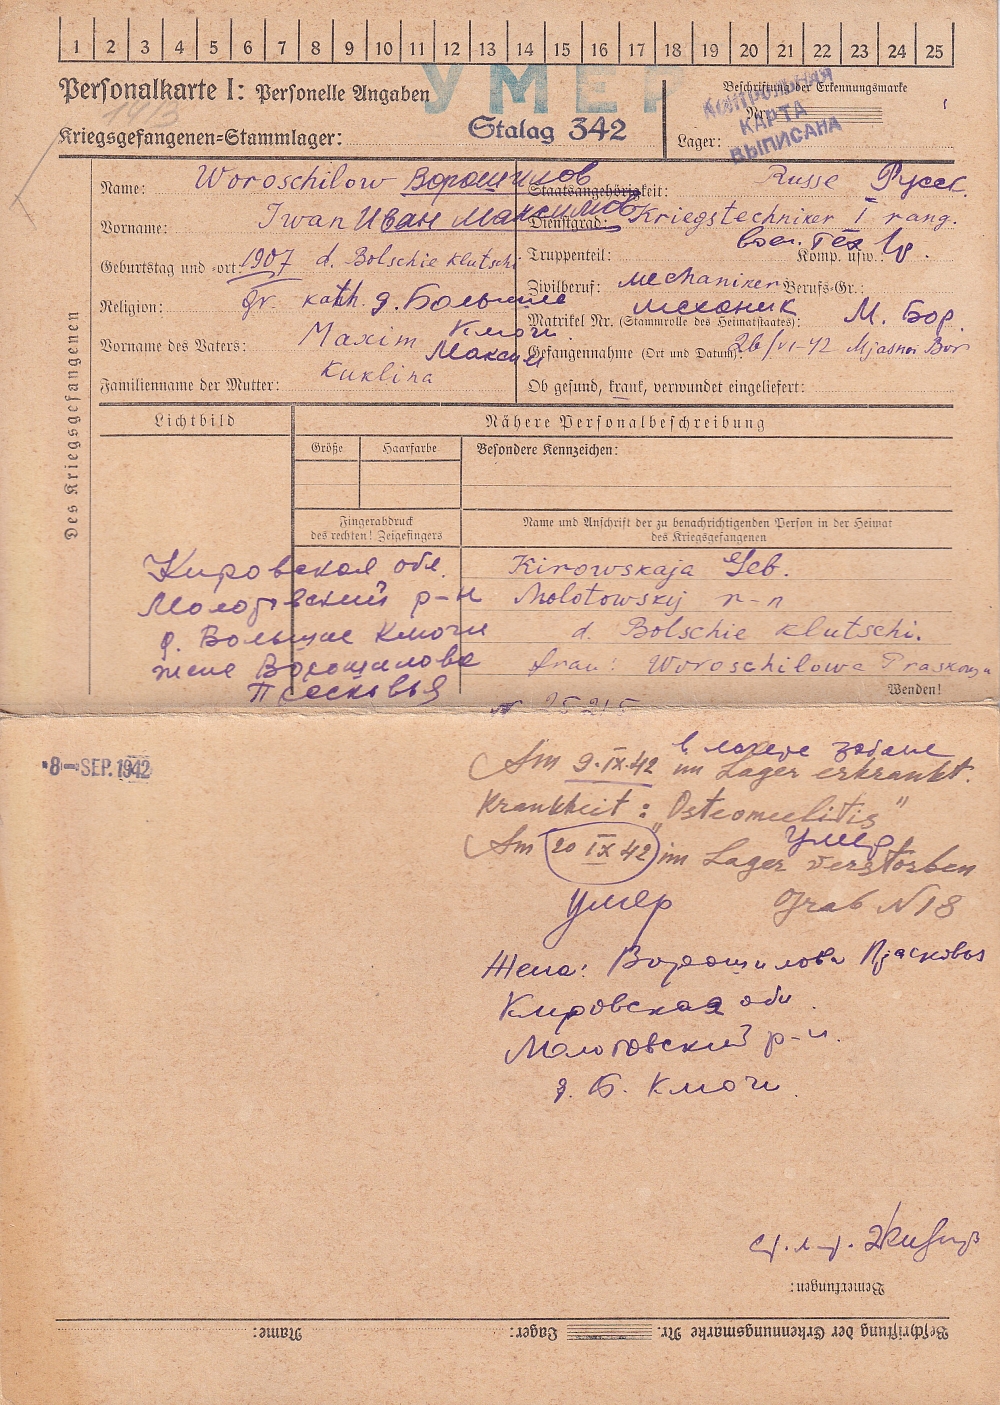 1 2 3 4 5 6 7 8 9 10 11 12 13 14 15 16 17 18 19 20 21 22 23 24 25
УМЕР
Personalkarte I: Personelle Angaben
Beschriftung der Erkennungsmarke
Nr.
КОНТРОЛЬНАЯ
КАРТА
ВЫПИСАНА
Kriegsgefangenen-Stammlager: Stalag 342
Lager:
Des Kriegsgefangenen
Name: Woroschilow Ворошилов
Vorname: Iwan Иван Максимов
Geburtstag und -ort: 1907 d. Bolschie klutschi
Religion: gr. kath. д. Большие
Ключи
Vorname des Vaters: Maxim Максим
Familienname der Mutter: Kuklina
Staatsangehörigkeit: Russe Русск.
Dienstgrad: Kriegstechniker I rang.
воен. тех 1р.
Truppenteil: Komp. usw.:
Zivilberuf: mechaniker Berufs-Gr.:
механик
Matrikel Nr. (Stammrolle des Heimatstaates): М. Бор.
Gefangennahme (Ort und Datum): 26/VI-42 Mjasnoi Bor
Ob gesund, krank, verwundet eingeliefert:
Lichtbild
Nähere Personalbeschreibung
Größe Haarfarbe Besondere Kennzeichen:
Fingerabdruck
des rechten! Zeigefingers
Name und Anschrift der zu benachrichtigenden Person in der Heimat
des Kriegsgefangenen
Кировская обл. Kirowskaja Geb.
Молотовский р-н Molotowskij r-n
д. Большие Ключи d. Bolschie klutschi.
жене Ворошилова frau: Woroschilowa Praskowja
Пасковья
Wenden!
№ 25215
8- SEP. 1942
в лагере заболе
Am 9.IX.42 im Lager erkrankt.
Krankheit: "Osteomeelitis"
умер
Am 20 IX 42 im Lager verstorben
умер Grab N 18
Жена: Ворошилова Прасковья
Кировская обл.
Молотовский р-н.
д. Б. Ключи
Bemerkungen:
Beschriftung der Erkennungsmarke Nr. Lager: Name: